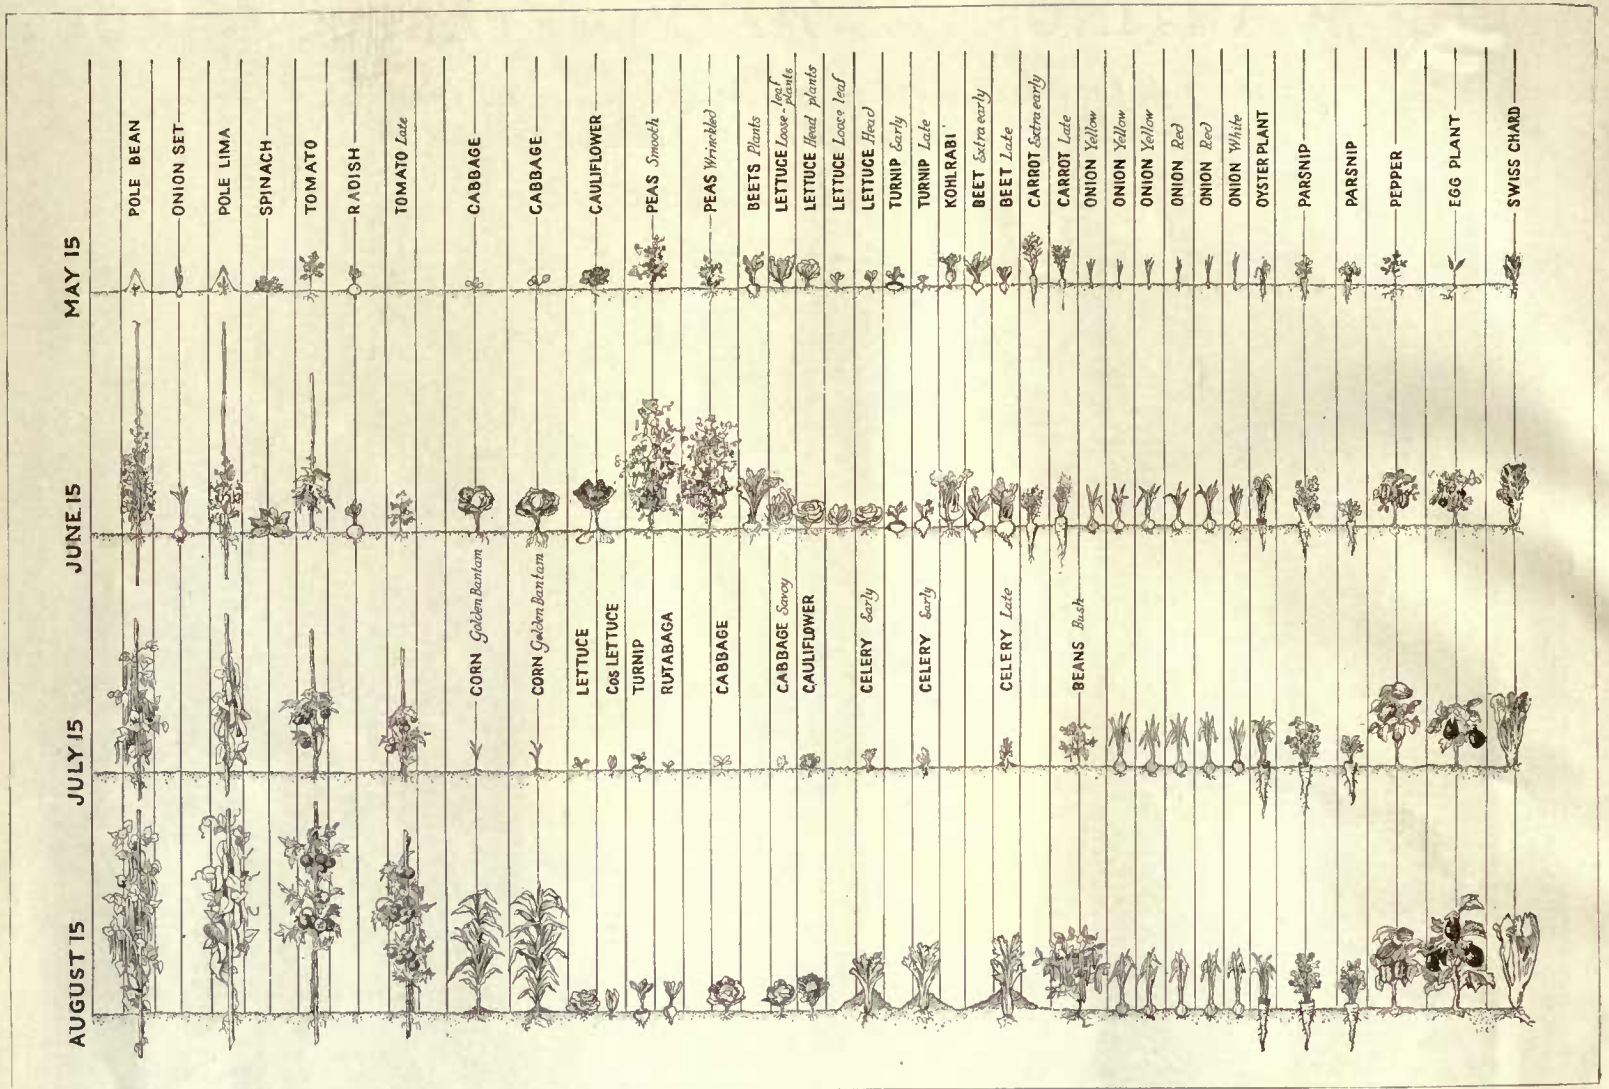 MAY 15
POLE BEAN
ONION SET
POLE LIMA
SPINACH
TOMATO
RADISH
TOMATO Late
CABBAGE
CABBAGE
CAULIFLOWER
PEAS Smooth
PEAS Wrinckled
BEETS Plants
LETTUCE Loose-leaf plants
LETTUCE Head plants
LETTUCE Loose leaf
LETTUCE Head
TURNIP Early
TURNIP Late
KOHLRABI
BEET Extra early
BEET Late
CARROT Extra early
CARROT Late
ONION Yellow
ONION Yellow
ONION Yellow
ONION Red
ONION Red
ONION White
OYSTER PLANT
PARSNIP
PARSNIP
PEPPER
EGG PLANT
SWISS CHARD
JUNE 15
CORN Golden Bantam
CORN Golden Bantam
LETTUCE
COS LETTUCE
TURNIP
RUTABAGA
CABBAGE
CABBAGE Savoy
CAULIFLOWER
CELERY Early
CELERY Early
CELERY Late
BEANS Bush
JULY 15
AUGUST 15